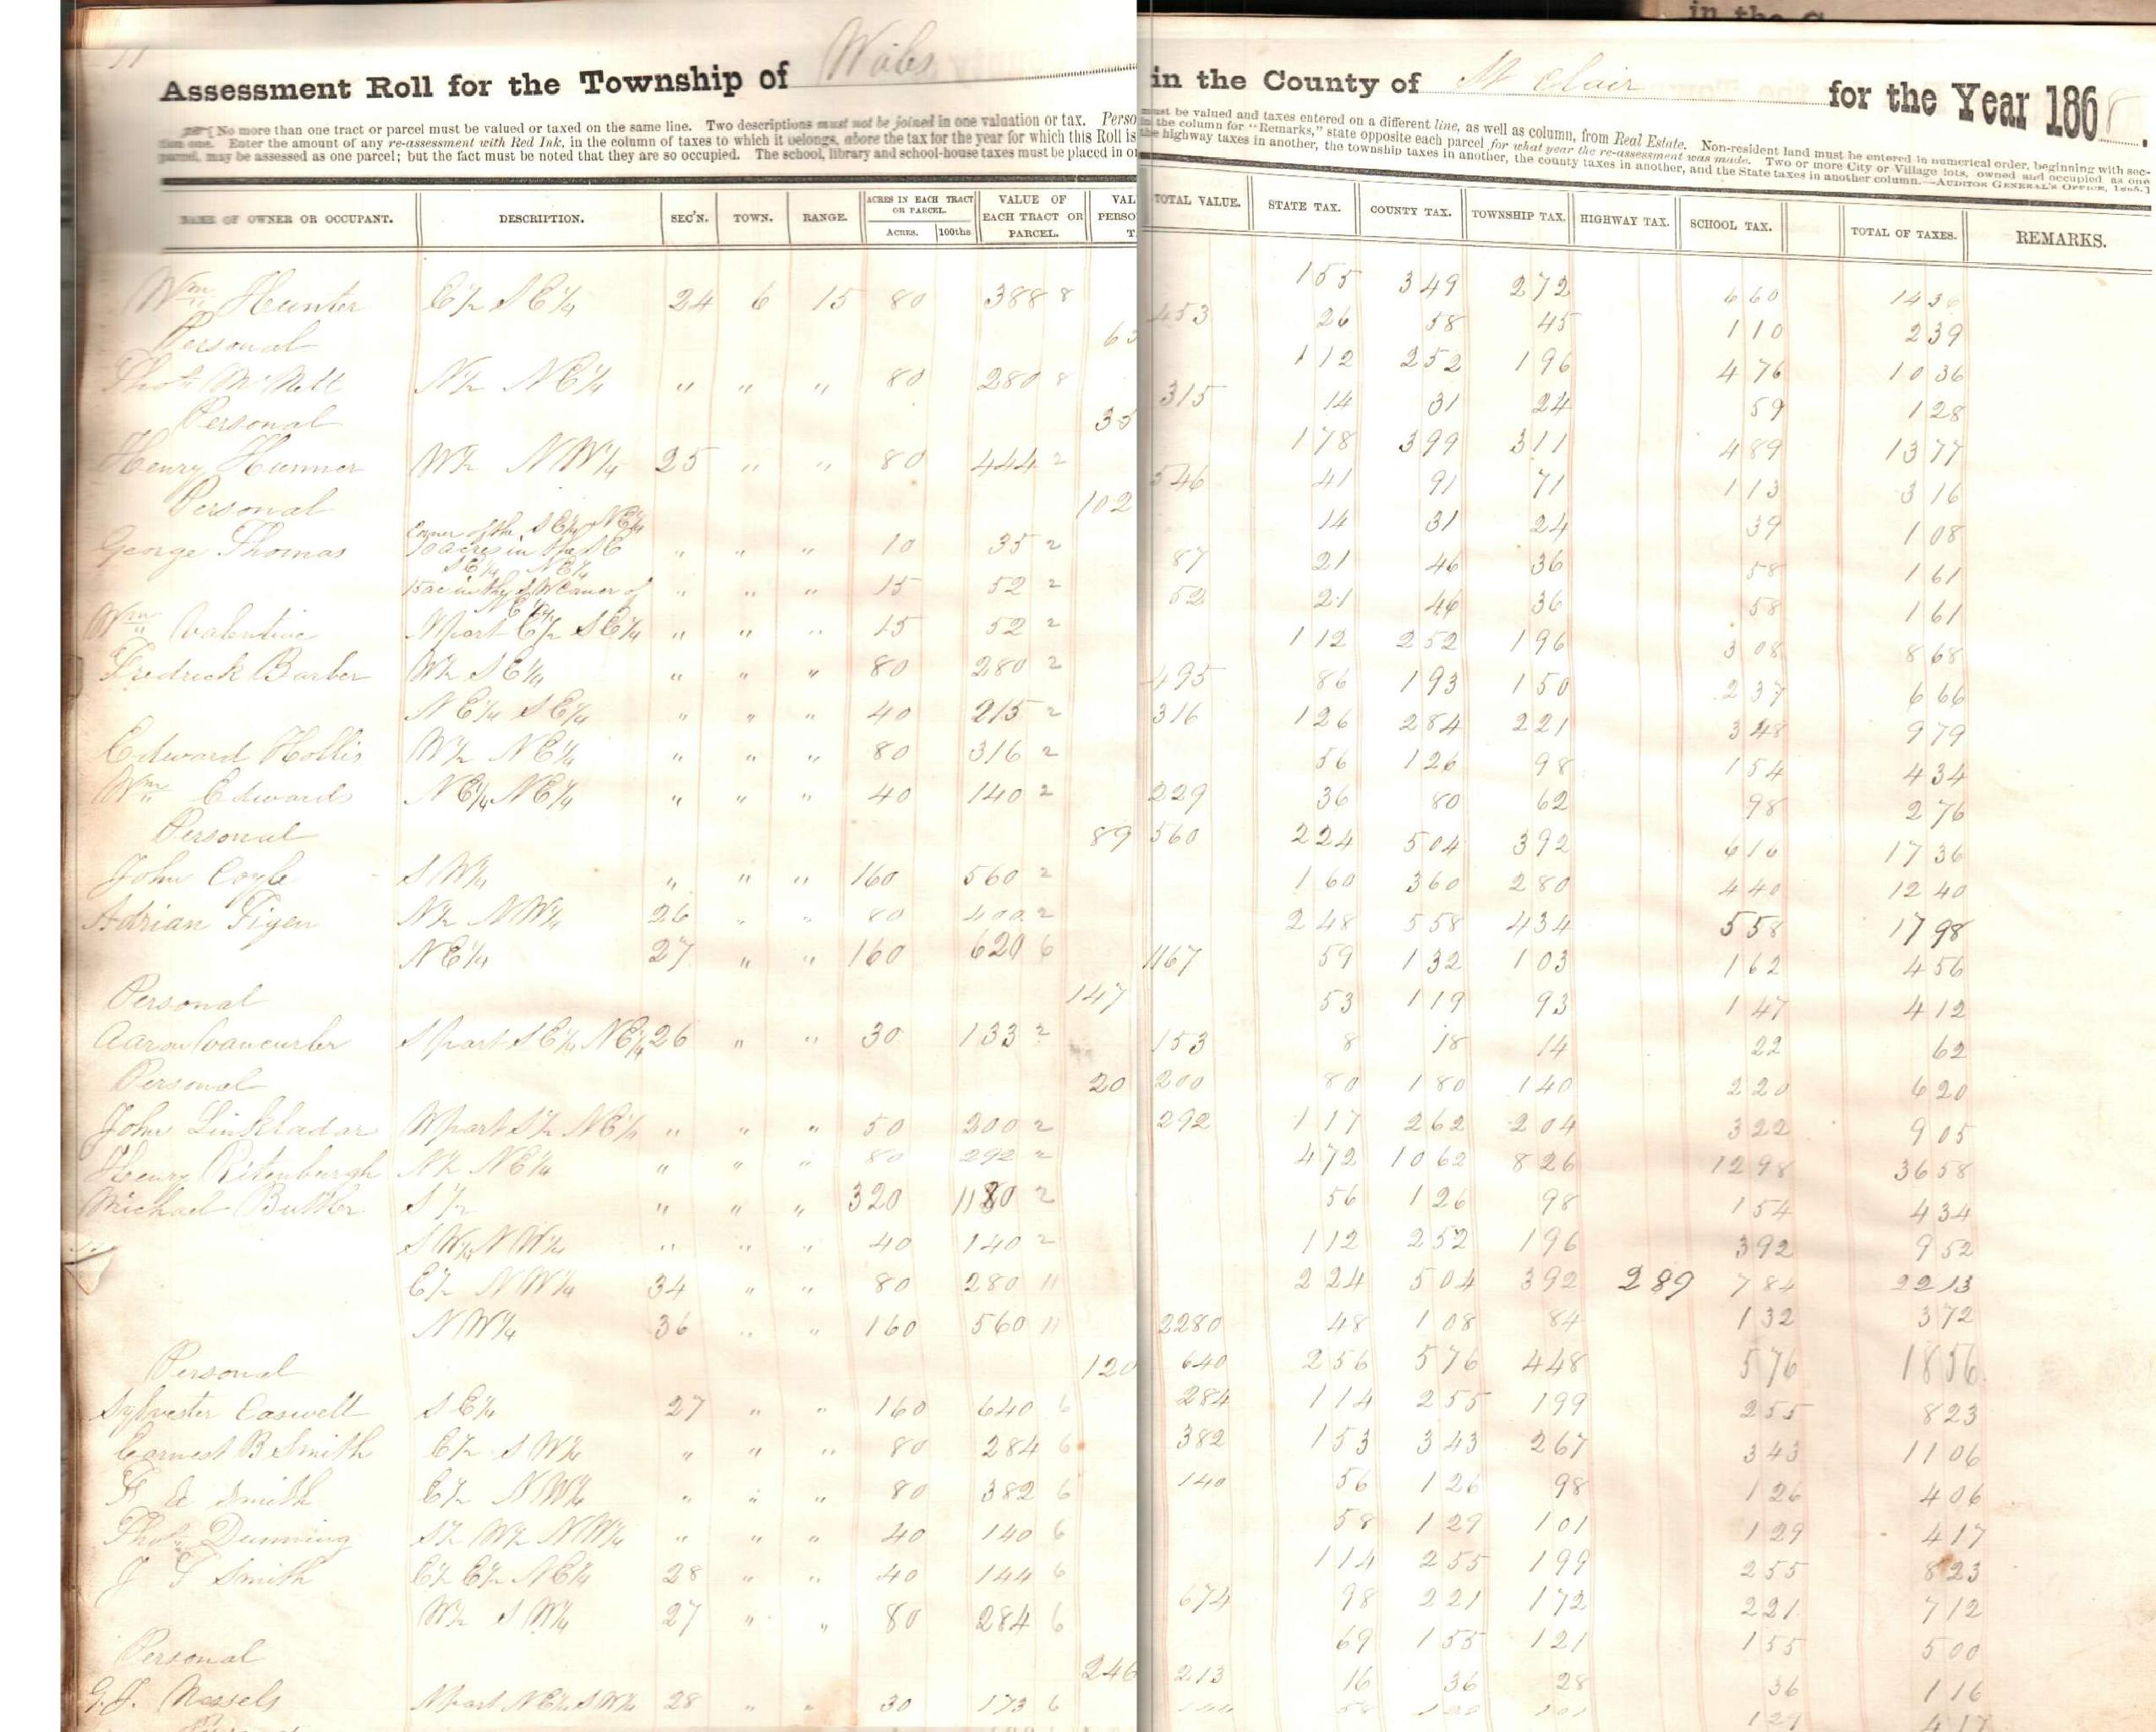 in the C
11
Assessment Roll for the Township of Wales in the County of St Clair for the Year 1868.
No more than one tract or parcel must be valued or taxed on the same line. Two descriptions must not be joined in one valuation or tax. Perso must be valued and taxes entered on a different line, as well as column, from Real Estate. Non-resident land must be entered in numerical order, beginning with sec-
tion one. Enter the amount of any re-assessment with Red Ink, in the column of taxes to which it belongs, above the tax for the year for which this Roll is in the column for "Remarks," state opposite each parcel for what year the re-assessment was made. Two or more City or Village lots, owned and occupied as one
parcel, may be assessed as one parcel; but the fact must be noted that they are so occupied. The school, library and school-house taxes must be placed in on the highway taxes in another, the township taxes in another, the county taxes in another, and the State taxes in another column.—AUDITOR GENERAL'S OFFICE, 1865.]
NAME OF OWNER OR OCCUPANT. DESCRIPTION. SEC'N. TOWN. RANGE. ACRES IN EACH TRACT OR PARCEL. ACRES. 100ths VALUE OF EACH TRACT OR PARCEL. VAL PERSO T. TOTAL VALUE. STATE TAX. COUNTY TAX. TOWNSHIP TAX. HIGHWAY TAX. SCHOOL TAX. TOTAL OF TAXES. REMARKS.
Wm Hunter E½ SE¼ 24 6 15 80 388 8 155 349 272 660 1436
Personal 65 453 26 58 45 110 239
Thos McNett N½ NE¼ " " " 80 280 8 112 252 196 476 1036
Personal 35 315 14 31 24 59 128
Henry Hunner W½ NW¼ 25 " " 80 444 2 178 399 311 489 1377
Personal 102 546 41 91 71 113 316
George Thomas 10 acres in the SE Corner of the SE¼ NE¼ " " " 10 35 2 14 31 24 39 108
15 ac in the SW Corner of SE¼ NE¼ " " " 15 52 2 87 21 46 36 58 161
Wm Valentine N part E½ SE¼ " " " 15 52 2 52 21 46 36 58 161
Fredrick Barber W½ SE¼ " " " 80 280 2 112 252 196 308 868
NE¼ SE¼ " " " 40 215 2 495 86 193 150 237 666
Edward Hollis W½ NE¼ " " " 80 316 2 316 126 284 221 348 979
Wm Edwards NE¼ NE¼ " " " 40 140 2 56 126 98 154 434
Personal 89 229 36 80 62 98 276
John Coyle SW¼ " " " 160 560 2 560 224 504 392 616 1736
Adrian Figen N½ NW¼ 26 " " 80 400 2 160 360 280 440 1240
NE¼ 27 " " 160 620 6 248 558 434 558 1798
Personal 147 1167 59 132 103 162 456
Aaron Vancurler S part SE¼ NE¼ 26 " " 30 133 2 53 119 93 147 412
Personal 20 153 8 18 14 22 62
John Linkladar W part S½ NE¼ " " " 50 200 2 200 80 180 140 220 620
Henry Ritenburgh N½ NE¼ " " " 80 292 2 292 117 262 204 322 905
Michael Butler S½ " " " 320 1180 2 472 1062 826 1298 3658
SW¼ NW¼ " " " 40 140 2 56 126 98 154 434
E½ NW¼ 34 " " 80 280 11 112 252 196 392 952
NW¼ 36 " " 160 560 11 224 504 392 289 784 2213
Personal 120 2280 48 108 84 132 372
Sylvester Caswell SE¼ 27 " " 160 640 6 640 256 576 448 576 1856
Earnest B Smith E½ SW¼ " " " 80 284 6 284 114 255 199 255 823
Smith E½ NW¼ " " " 80 382 6 382 153 343 267 343 1106
Thos Dunning S½ W½ NW¼ " " " 40 140 6 140 56 126 98 126 406
J T Smith E½ E½ NE¼ 28 " " 40 144 6 58 129 101 129 417
W½ SW¼ 27 " " 80 284 6 114 255 199 255 823
Personal 246 674 98 221 172 221 712
G. J. Nessels N part NE¼ SW¼ 28 " " 30 173 6 69 155 121 155 500
213 16 36 28 36 116
129 417